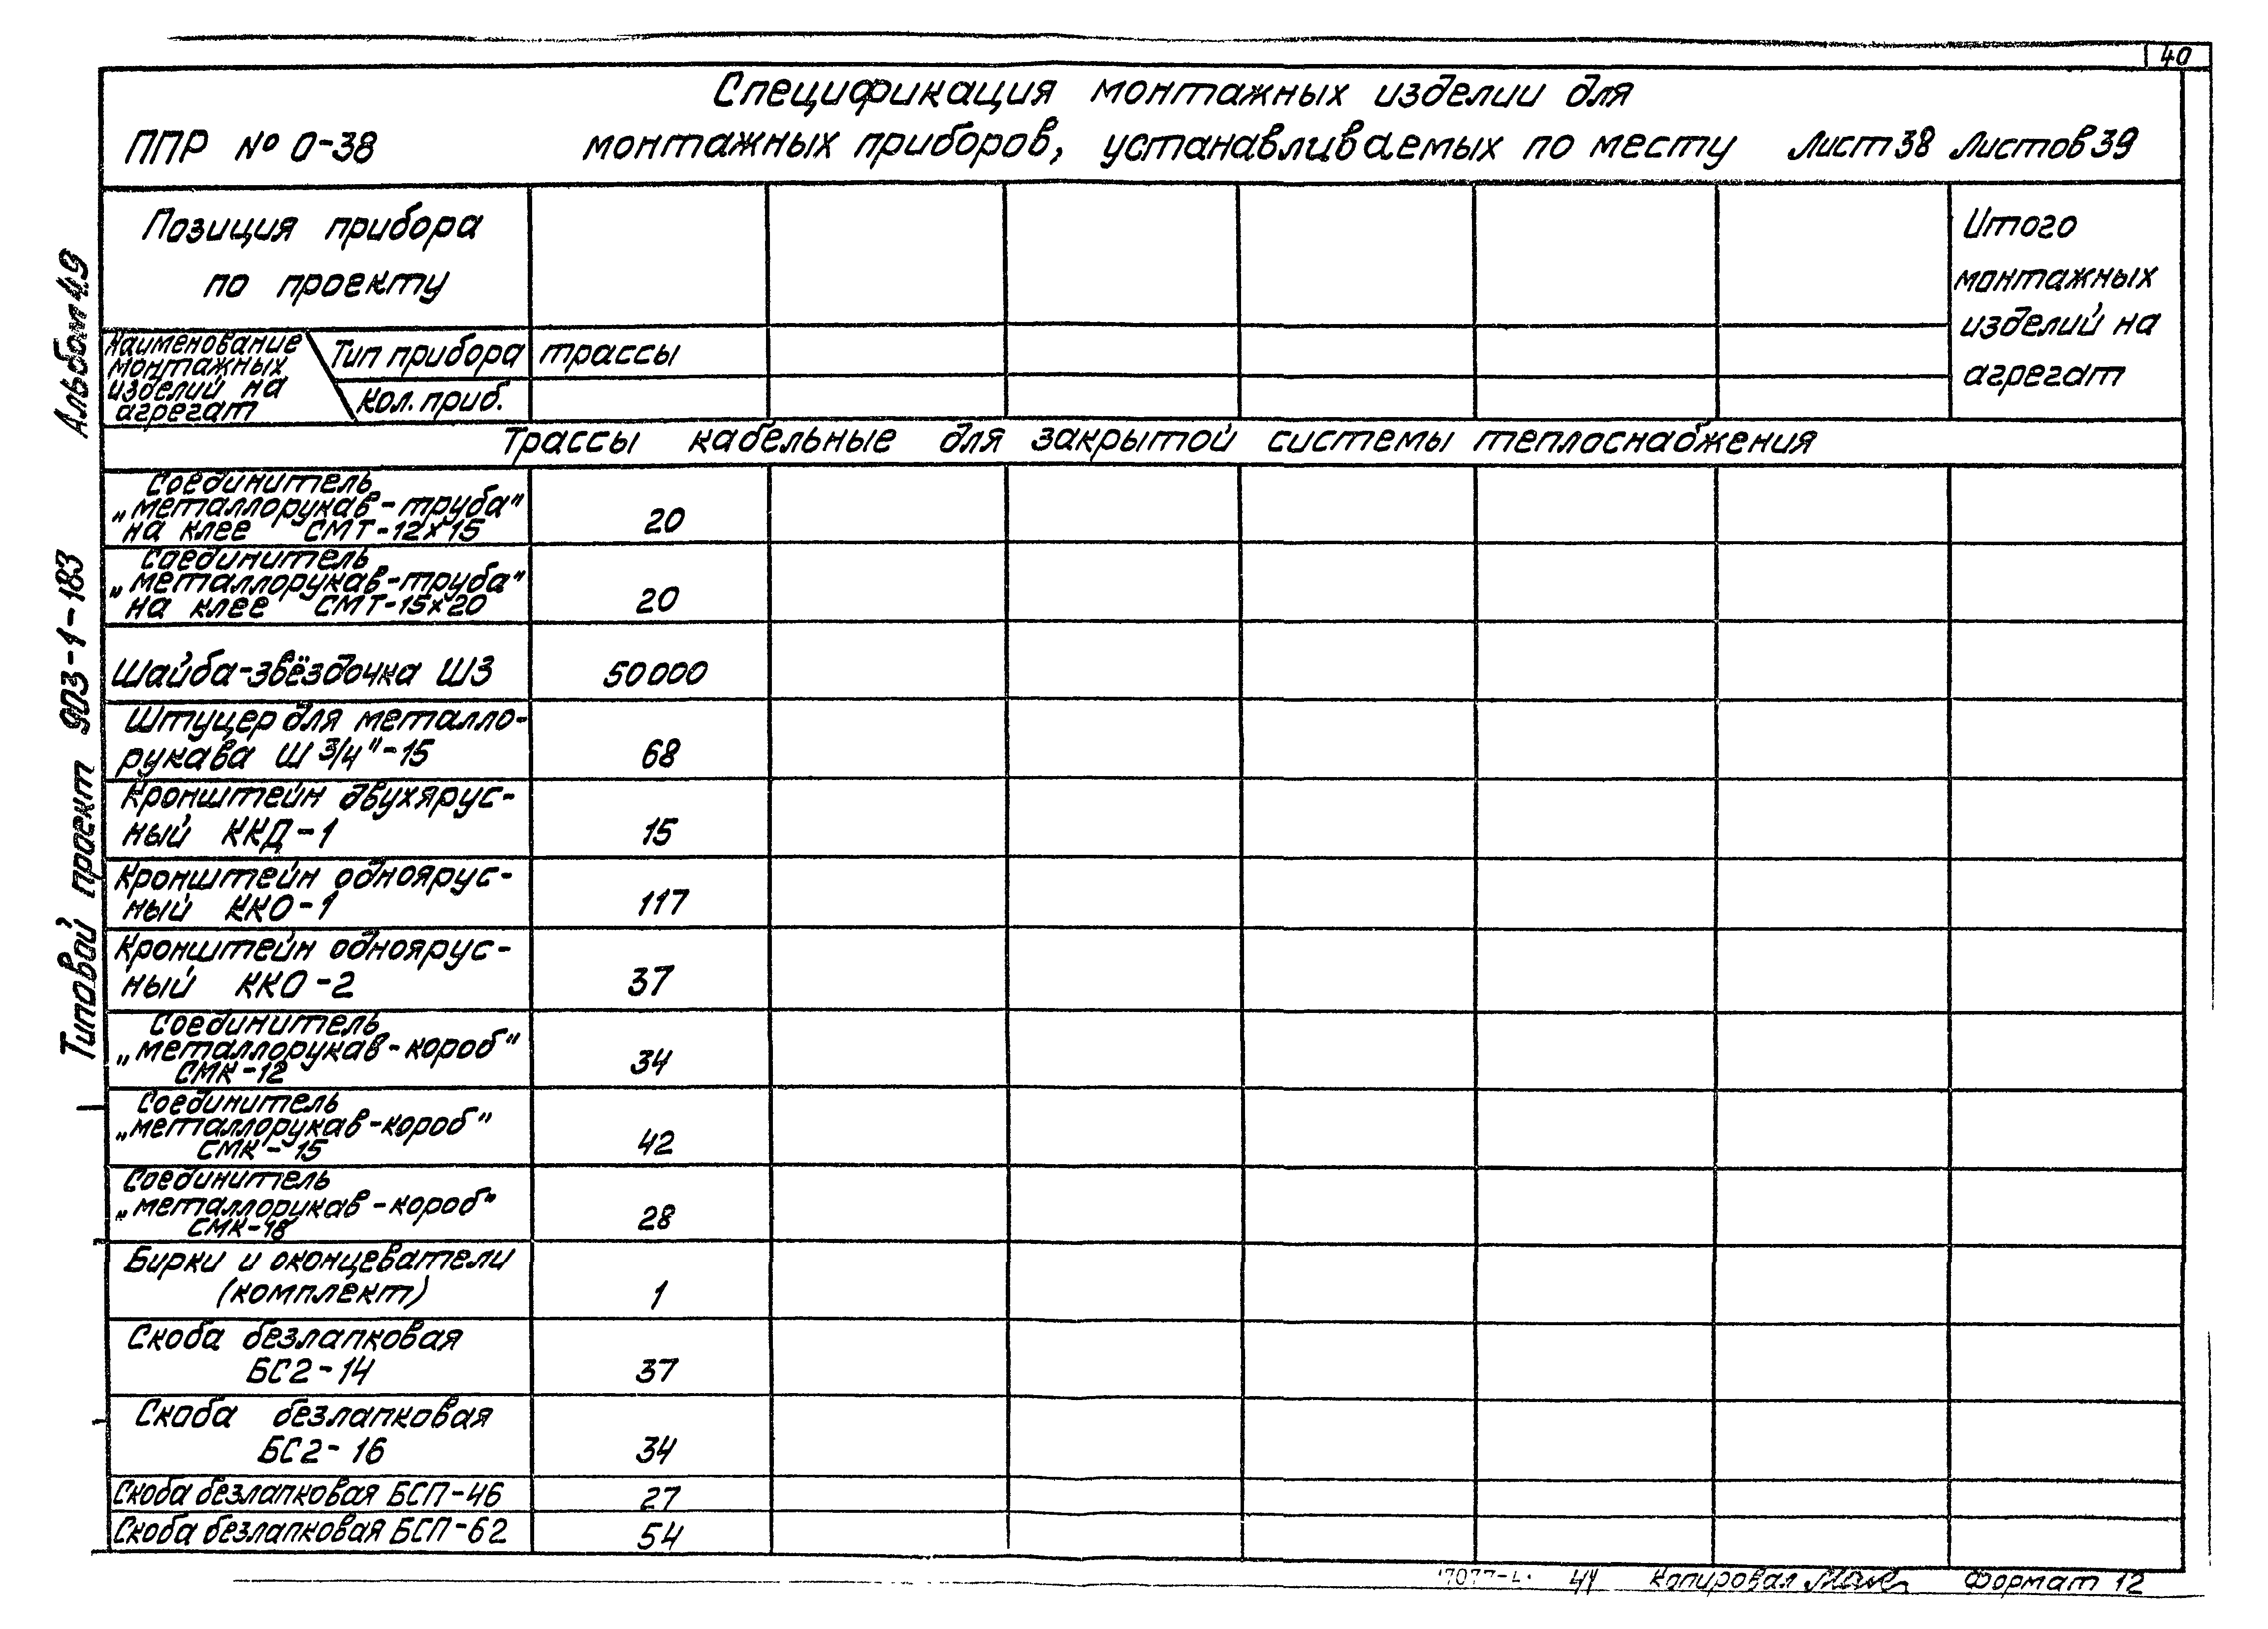 40
Спецификация монтажных изделии для
ППР № О-38 монтажных приборов, устанавливаемых по месту Лист 38 Листов 39
Позиция прибора
по проекту
Итого
монтажных
изделий на
агрегат
Наименование
монтажных
изделий на
агрегат
Тип прибора трассы
Кол. приб.
Трассы кабельные для закрытой системы теплоснабжения
Соединитель
„металлорукав-труба"
на клее СМТ-12х15 20
Соединитель
„металлорукав-труба"
на клее СМТ-15х20 20
Шайба-звёздочка ШЗ 50000
Штуцер для металло-
рукава Ш 3/4"-15 68
Кронштейн двухярус-
ный ККД-1 15
Кронштейн одноярус-
ный ККО-1 117
Кронштейн одноярус-
ный ККО-2 37
Соединитель
„металлорукав-короб"
СМК-12 34
Соединитель
„металлорукав-короб"
СМК-15 42
Соединитель
„металлорукав-короб"
СМК-18 28
Бирки и оконцеватели
(комплект) 1
Скоба безлапковая
БС2-14 37
Скоба безлапковая
БС2-16 34
Скоба безлапковая БСП-46 27
Скоба безлапковая БСП-62 54
Типовой проект 903-1-183 Альбом 4.9
41 Копировал Формат 12